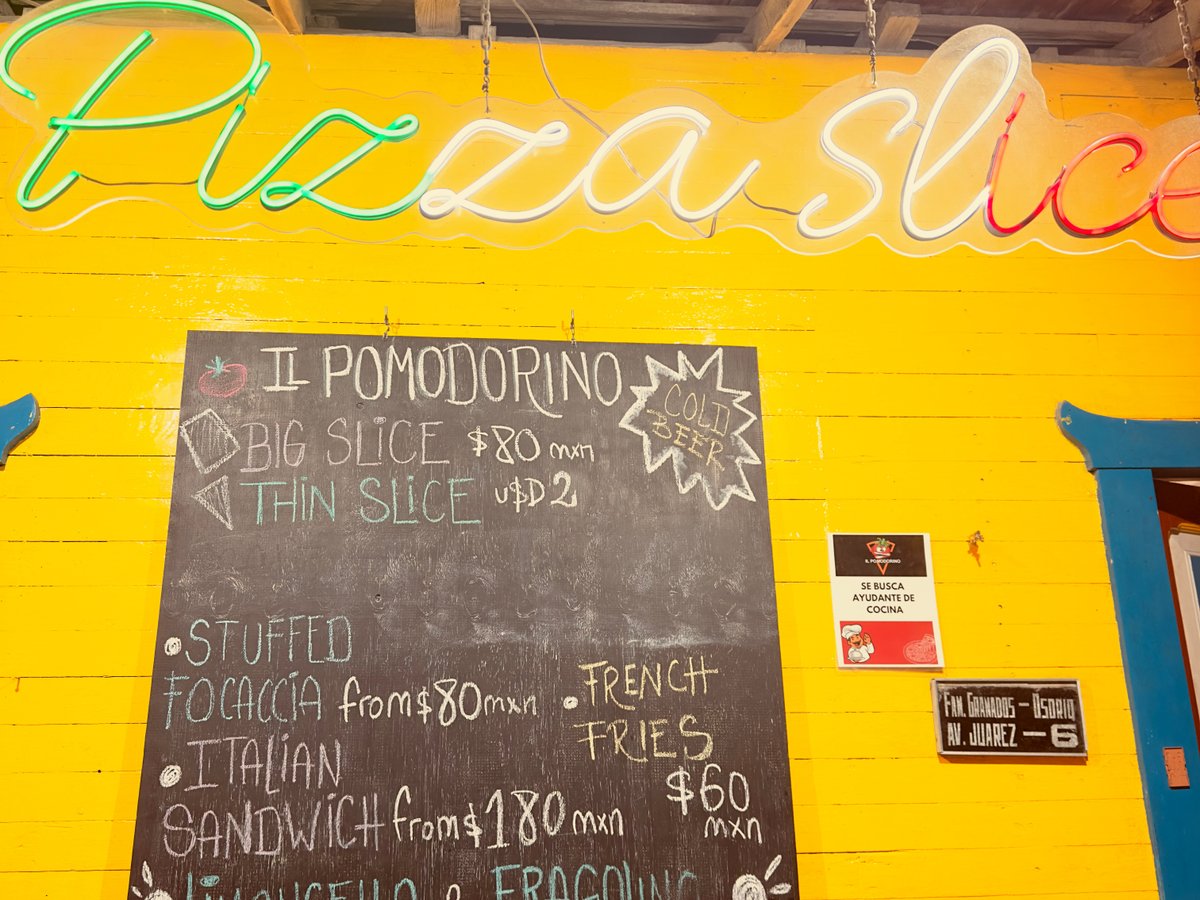 Pizza slice
IL POMODORINO
COLD
BEER
BIG SLICE $80 mxn
THIN SLICE U$D2
STUFFED
FOCACCIA from $80 mxn
FRENCH
FRIES
$60
mxn
ITALIAN
SANDWICH from $180 mxn
LIMONCELLO & FRAGOLINO
IL POMODORINO
SE BUSCA
AYUDANTE DE
COCINA
FAM. GRANADOS - OSORIO
AV. JUAREZ - 6